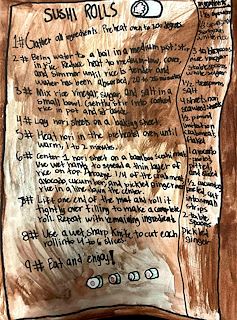 SUSHI ROLLS
1# Gather all ingredients. Preheat oven to
2# Being water to a boil in a medium pot; stir
in rice. Reduce heat to medium-low, cover,
and simmer until rice is tender and
water has been absorbed,
3# Mix rice vinegar, sugar, and salt in a
small bowl. Gently stir into cooked
rice in pot
4# Lay nori sheets on a baking sheet.
5# Heat nori in the preheated oven until
warm, 1 to 2 minutes.
6# Center 1 nori sheet on a bamboo sushi mat.
use wet hands to spread a thin layer of
rice on top. Arrange 1/4 of the crabmeat,
avocado, cucumber, and pickled ginger over
rice in a line down the center.
7# Lift one end of the mat and roll it
tightly over filling to make a complete
roll. Repeat with remaining ingredients.
8# Use a wet, sharp knife to cut each
roll into 4 to 6 slices.
9# Eat and enjoy!
ingredients
rice
3 tablespoons
rice vinegar
tablespoons
sugar
salt
4 sheets nori
seaweed
½ pound
imitation
crabmeat
flaked
1 avocado
peeled
pitted
and
sliced
½ cucumber
peeled
cut
into small
strips
2 table
spoons
pickled
ginger